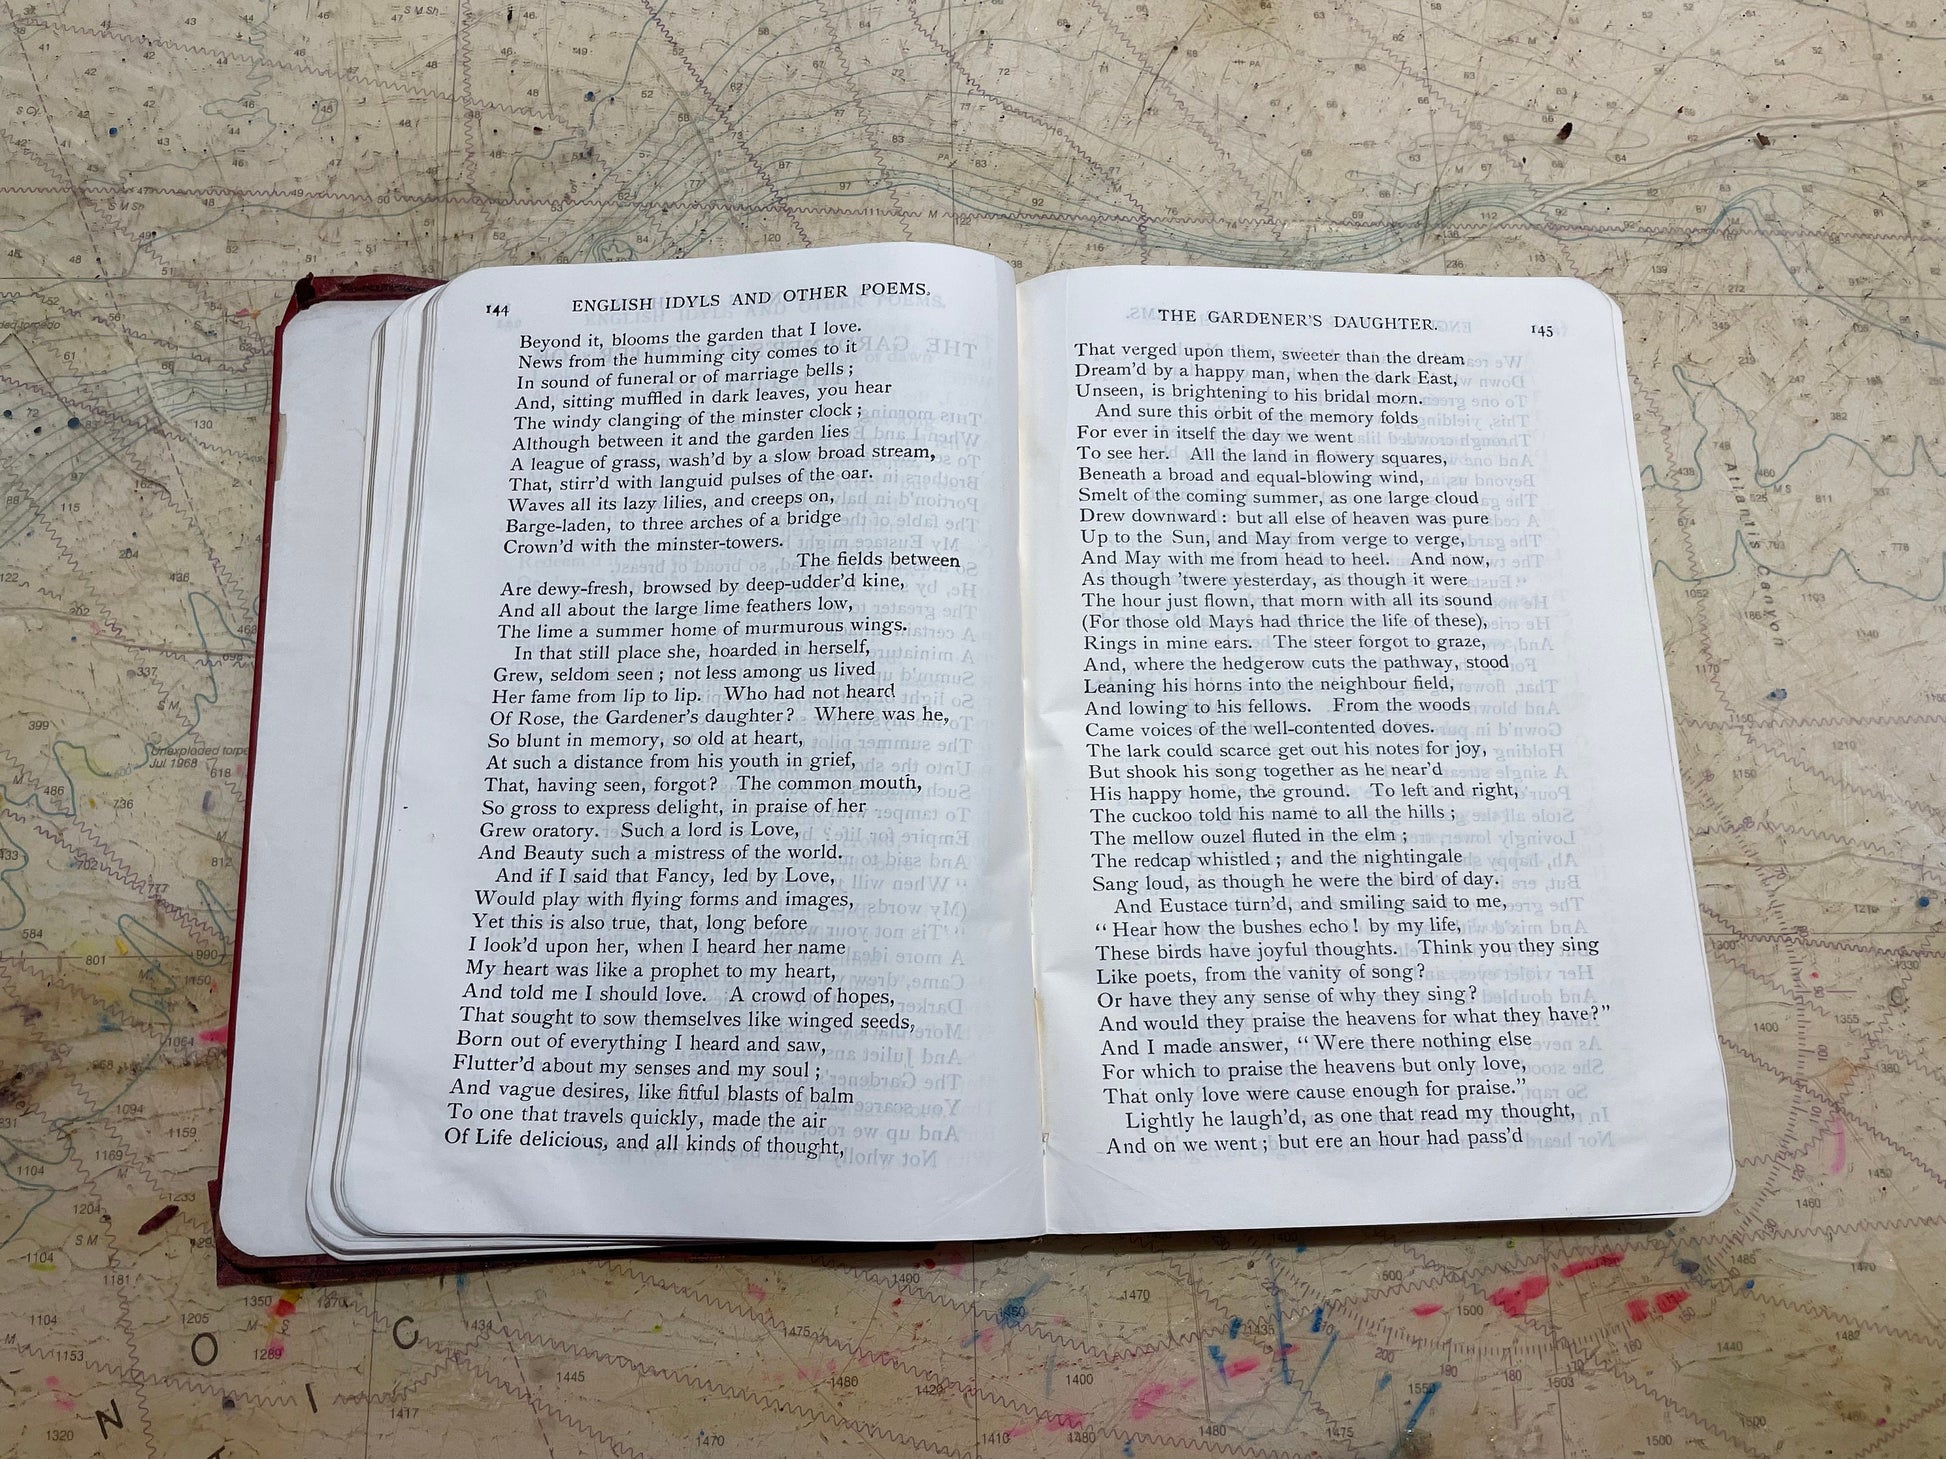 144
ENGLISH IDYLS AND OTHER POEMS.
Beyond it, blooms the garden that I love.
News from the humming city comes to it
In sound of funeral or of marriage bells ;
And, sitting muffled in dark leaves, you hear
The windy clanging of the minster clock ;
Although between it and the garden lies
A league of grass, wash'd by a slow broad stream,
That, stirr'd with languid pulses of the oar.
Waves all its lazy lilies, and creeps on,
Barge-laden, to three arches of a bridge
Crown'd with the minster-towers.
The fields between
Are dewy-fresh, browsed by deep-udder'd kine,
And all about the large lime feathers low,
The lime a summer home of murmurous wings.
In that still place she, hoarded in herself,
Grew, seldom seen ; not less among us lived
Her fame from lip to lip. Who had not heard
Of Rose, the Gardener's daughter? Where was he,
So blunt in memory, so old at heart,
At such a distance from his youth in grief,
That, having seen, forgot? The common mouth,
So gross to express delight, in praise of her
Grew oratory. Such a lord is Love,
And Beauty such a mistress of the world.
And if I said that Fancy, led by Love,
Would play with flying forms and images,
Yet this is also true, that, long before
I look'd upon her, when I heard her name
My heart was like a prophet to my heart,
And told me I should love. A crowd of hopes,
That sought to sow themselves like winged seeds,
Born out of everything I heard and saw,
Flutter'd about my senses and my soul ;
And vague desires, like fitful blasts of balm
To one that travels quickly, made the air
Of Life delicious, and all kinds of thought,
THE GARDENER'S DAUGHTER.
145
That verged upon them, sweeter than the dream
Dream'd by a happy man, when the dark East,
Unseen, is brightening to his bridal morn.
And sure this orbit of the memory folds
For ever in itself the day we went
To see her. All the land in flowery squares,
Beneath a broad and equal-blowing wind,
Smelt of the coming summer, as one large cloud
Drew downward : but all else of heaven was pure
Up to the Sun, and May from verge to verge,
And May with me from head to heel. And now,
As though 'twere yesterday, as though it were
The hour just flown, that morn with all its sound
(For those old Mays had thrice the life of these),
Rings in mine ears. The steer forgot to graze,
And, where the hedgerow cuts the pathway, stood
Leaning his horns into the neighbour field,
And lowing to his fellows. From the woods
Came voices of the well-contented doves.
The lark could scarce get out his notes for joy,
But shook his song together as he near'd
His happy home, the ground. To left and right,
The cuckoo told his name to all the hills ;
The mellow ouzel fluted in the elm ;
The redcap whistled ; and the nightingale
Sang loud, as though he were the bird of day.
And Eustace turn'd, and smiling said to me,
“ Hear how the bushes echo! by my life,
These birds have joyful thoughts. Think you they sing
Like poets, from the vanity of song?
Or have they any sense of why they sing?
And would they praise the heavens for what they have?”
And I made answer, “ Were there nothing else
For which to praise the heavens but only love,
That only love were cause enough for praise.”
Lightly he laugh'd, as one that read my thought,
And on we went ; but ere an hour had pass'd
Atlantis Canyon
Unexploded torpe
Jul 1968